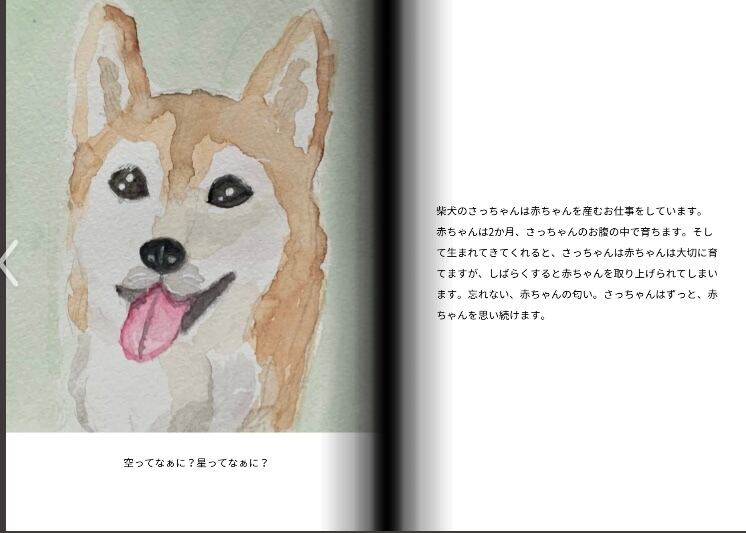 空ってなぁに？星ってなぁに？
柴犬のさっちゃんは赤ちゃんを産むお仕事をしています。
赤ちゃんは2か月、さっちゃんのお腹の中で育ちます。そし
て生まれてきてくれると、さっちゃんは赤ちゃんは大切に育
てますが、しばらくすると赤ちゃんを取り上げられてしまい
ます。忘れない、赤ちゃんの匂い。さっちゃんはずっと、赤
ちゃんを思い続けます。